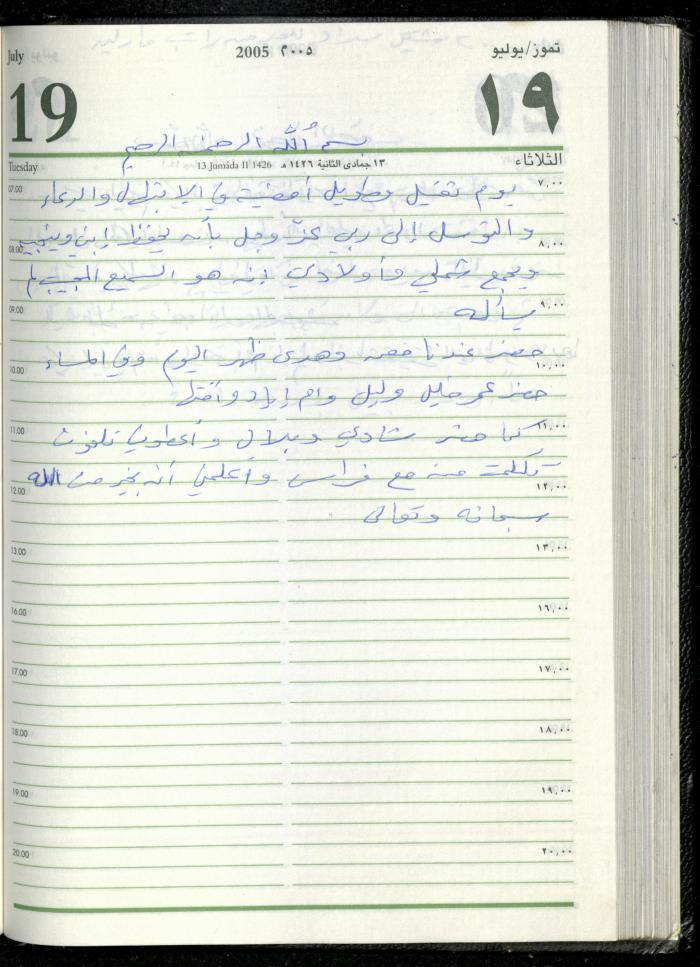 July 2005 ٢٠٠٥ تموز/يوليو
19 ١٩
بسم الله الرحمن الرحيم
Tuesday 13 Jumâda II 1426 ١٣ جمادى الثانية ١٤٢٦ هـ الثلاثاء
07.00 ٧,٠٠
يوم ثقيل وطويل أمضيته في الابتهال والدعاء
والتوسل إلى ربي عزّ وجل بأنه يحفظ ابني وينجيه
08.00 ٨,٠٠
ويجمع شملي وأولادي إنه هو السميع المجيب لمن
09.00 ٩,٠٠
يسأله
حضر عندنا وهدى ظهر اليوم وفي المساء
10.00 ١٠,٠٠
حضر عمر خليل وليلى وام إياد وأختها
11.00 ١١,٠٠
كما حضر شادي وبلال وأعطوني تلفون
تكلمت منه مع فراس وأعلمني أنه بخير من الله
12.00 ١٢,٠٠
سبحانه وتعالى
13.00 ١٣,٠٠
16.00 ١٦,٠٠
17.00 ١٧,٠٠
18.00 ١٨,٠٠
19.00 ١٩,٠٠
20.00 ٢٠,٠٠